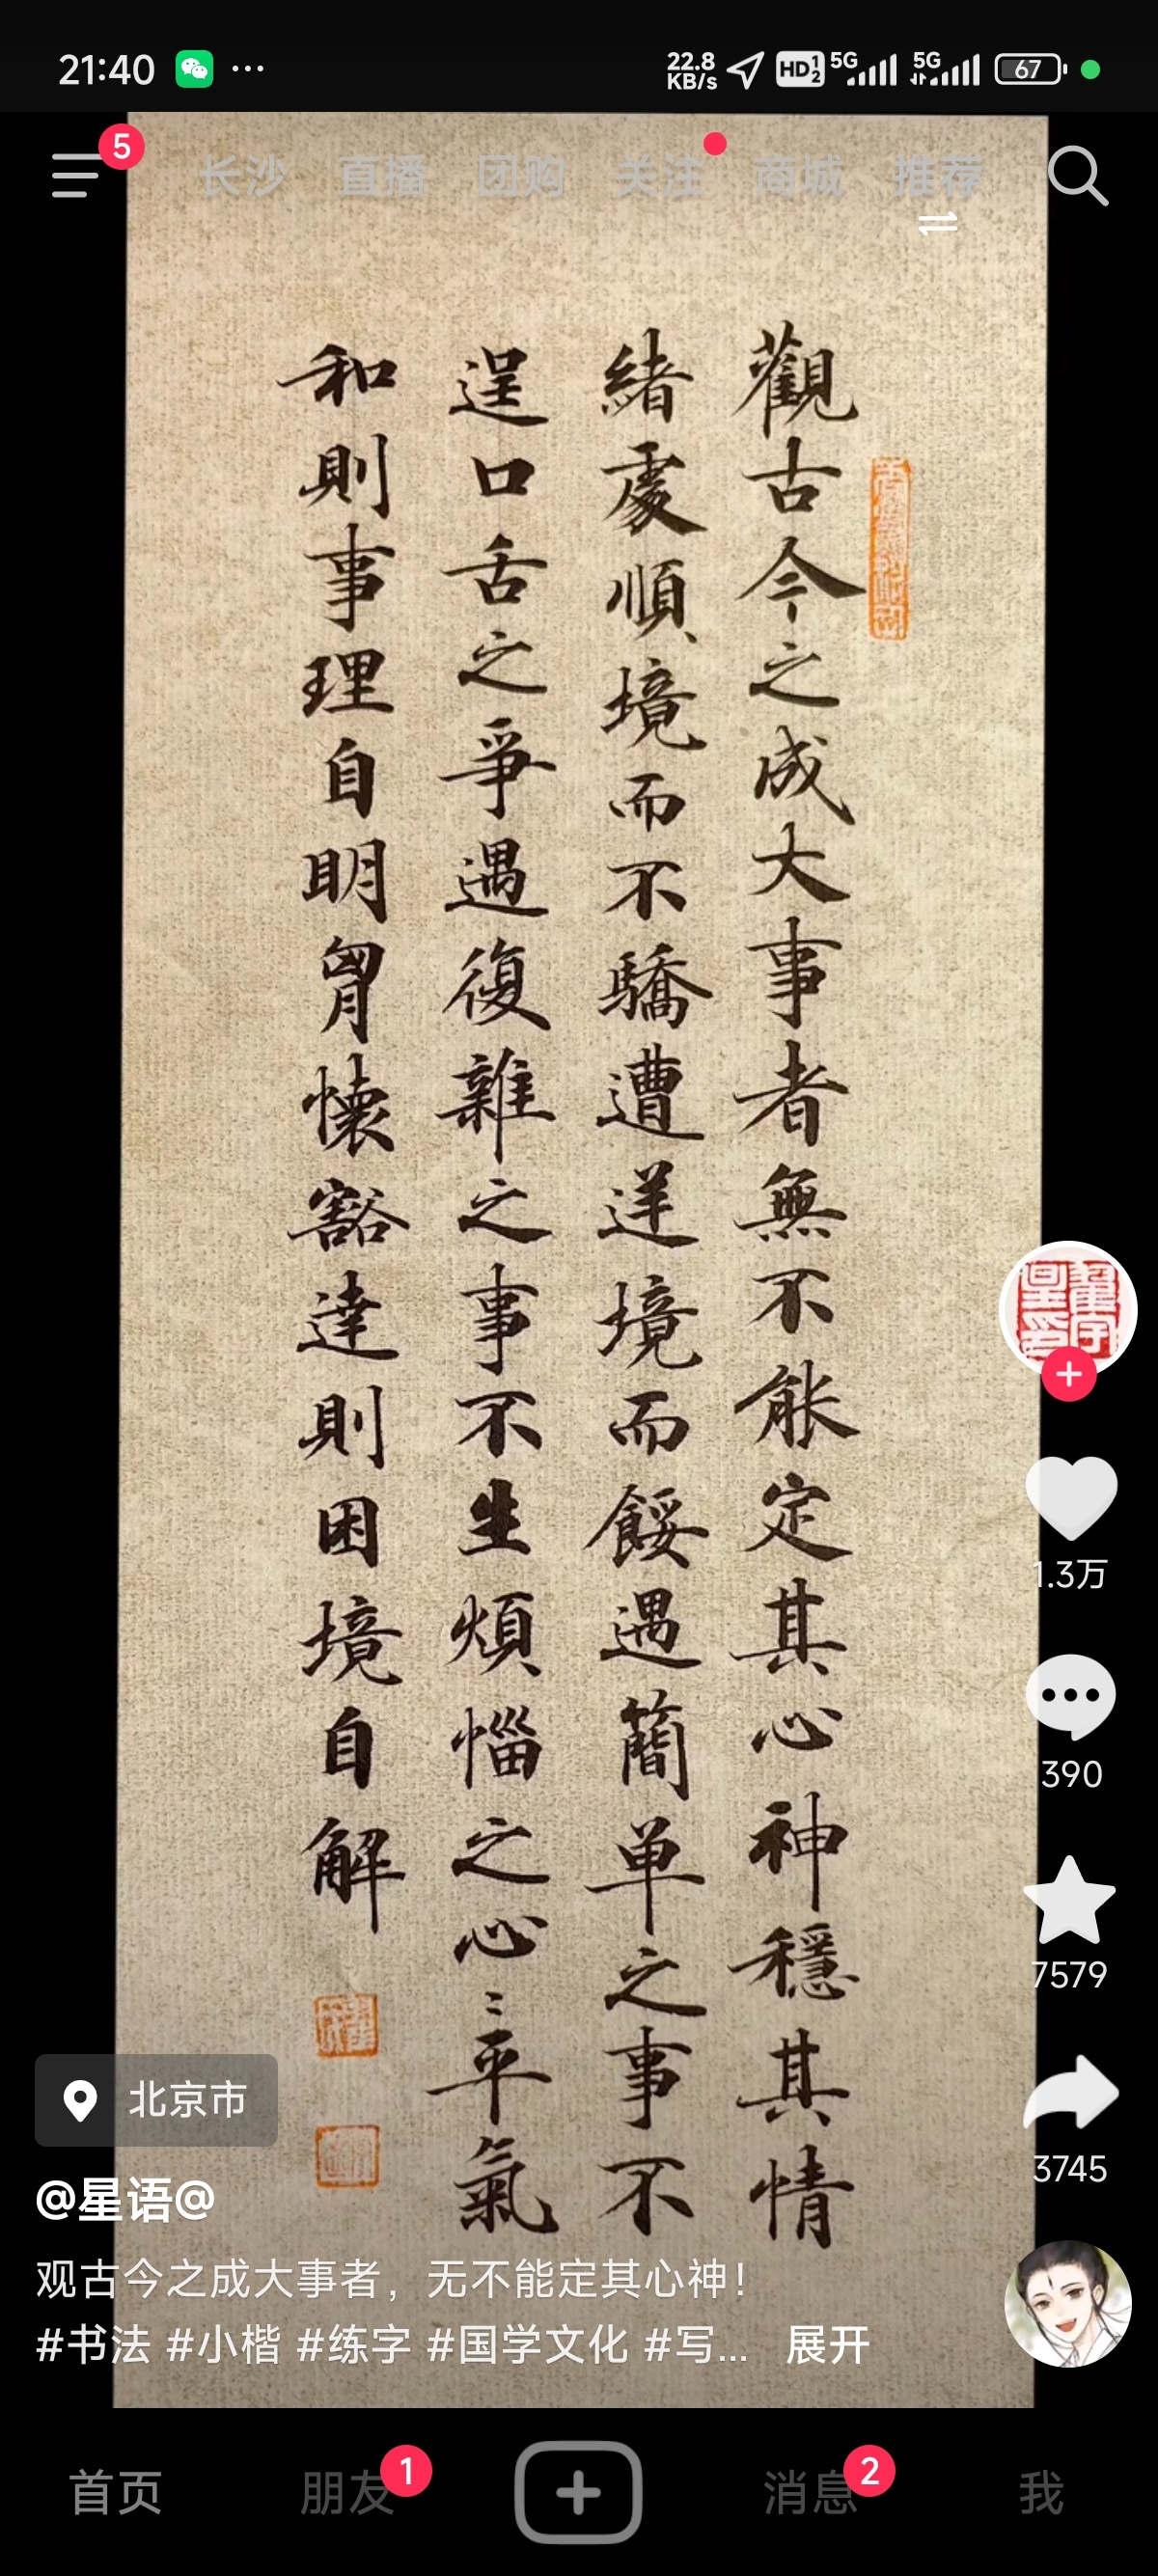 21:40 ··· 22.8 KB/s HD 1 2 5G 5G 67
5
长沙 直播 团购 关注 商城 推荐
觀古今之成大事者無不能定其心神穩其情
緒處順境而不驕遭逆境而餒遇簡单之事不
逞口舌之爭遇復雜之事不生煩惱之心:平氣
和則事理自明胷懷豁達則困境自解
1.3万
390
7579
3745
北京市
@星语@
观古今之成大事者，无不能定其心神！
#书法 #小楷 #练字 #国学文化 #写... 展开
首页 朋友 1 消息 2 我